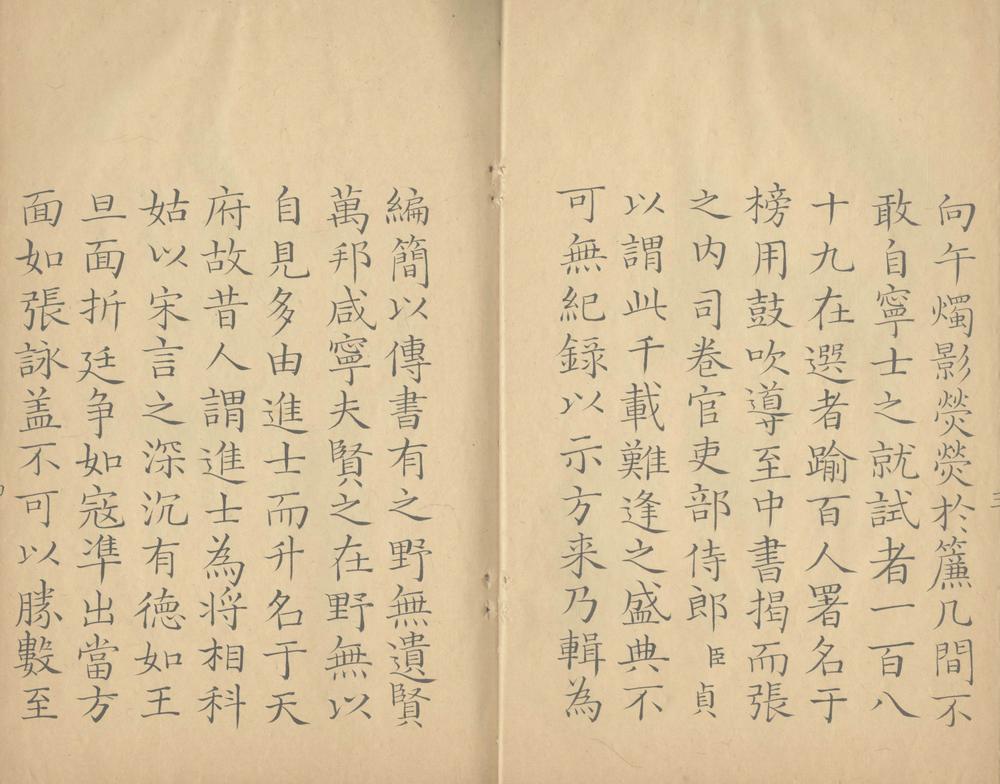 向午燭影熒熒於簾几間不
敢自寧士之就試者一百八
十九在選者踰百人署名于
榜用鼓吹導至中書揭而張
之内司卷官吏部侍郎臣貞
以謂此千載難逢之盛典不
可無紀録以示方来乃輯為
編簡以傳書有之野無遺賢
萬邦咸寧夫賢之在野無以
自見多由進士而升名于天
府故昔人謂進士為将相科
姑以宋言之深沉有德如王
旦面折廷争如寇凖出當方
面如張詠盖不可以勝數至